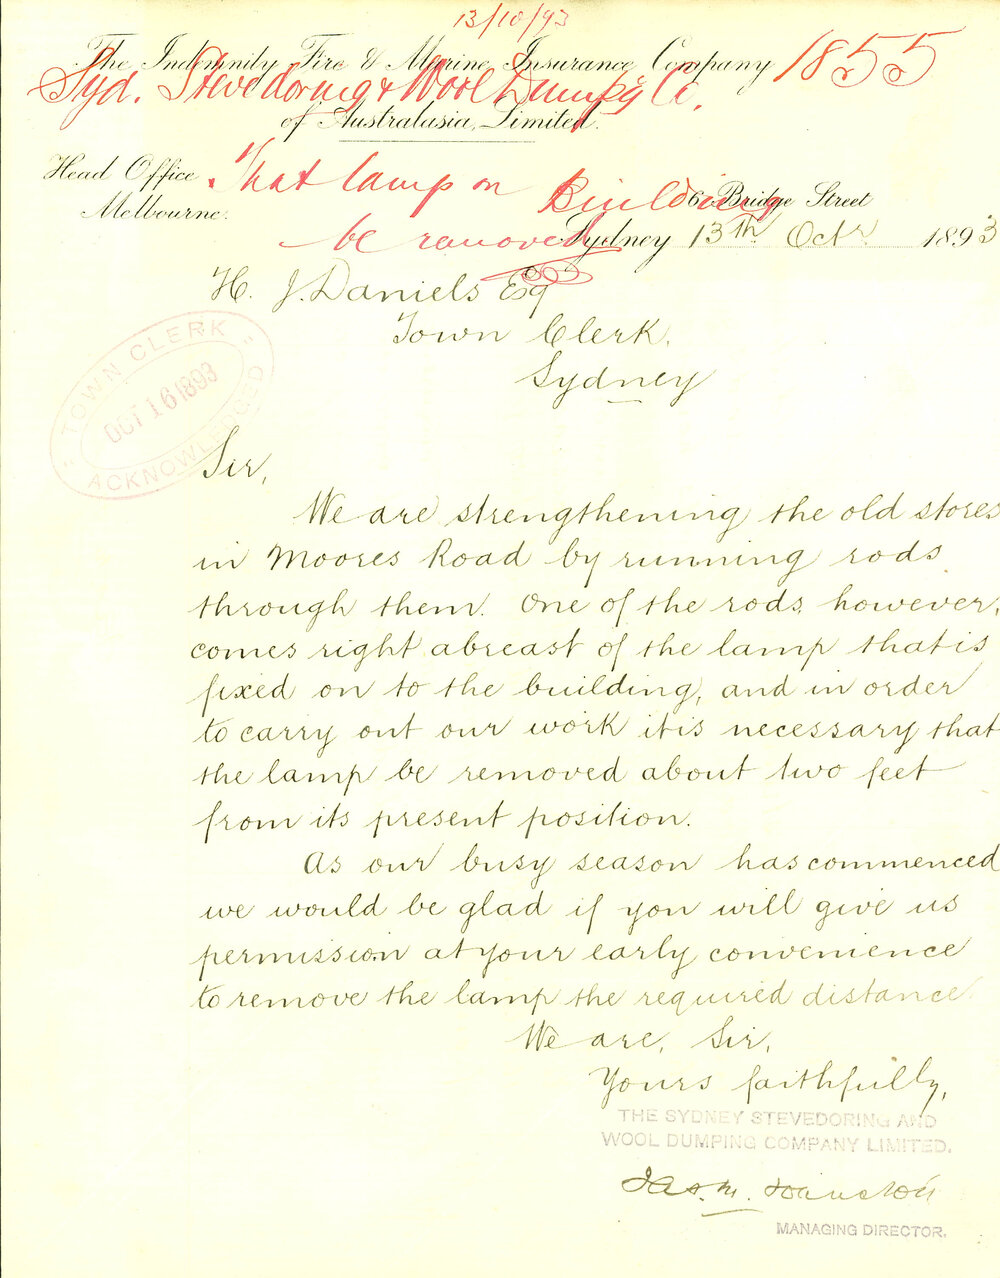 13/10/93
The Indemnity Fire & Marine Insurance Company 1855
Syd. Stevedoring & Wool Dumpg Co.
of Australasia, Limited.
Head Office
Melbourne.
That lamp on Building
be removed
6 Bridge Street
Sydney 13th Octr 1893
H. J. Daniels Esq
Town Clerk,
Sydney
TOWN CLERK
OCT 16 1893
ACKNOWLEDGED
Sir,
We are strengthening the old stores
in Moores Road by running rods
through them. One of the rods, however,
comes right abreast of the lamp that is
fixed on to the building, and in order
to carry out our work it is necessary that
the lamp be removed about two feet
from its present position.
As our busy season has commenced
we would be glad if you will give us
permission at your early convenience
to remove the lamp the required distance.
We are, Sir,
Yours faithfully,
THE SYDNEY STEVEDORING AND
WOOL DUMPING COMPANY LIMITED.
Jas. M.
MANAGING DIRECTOR.